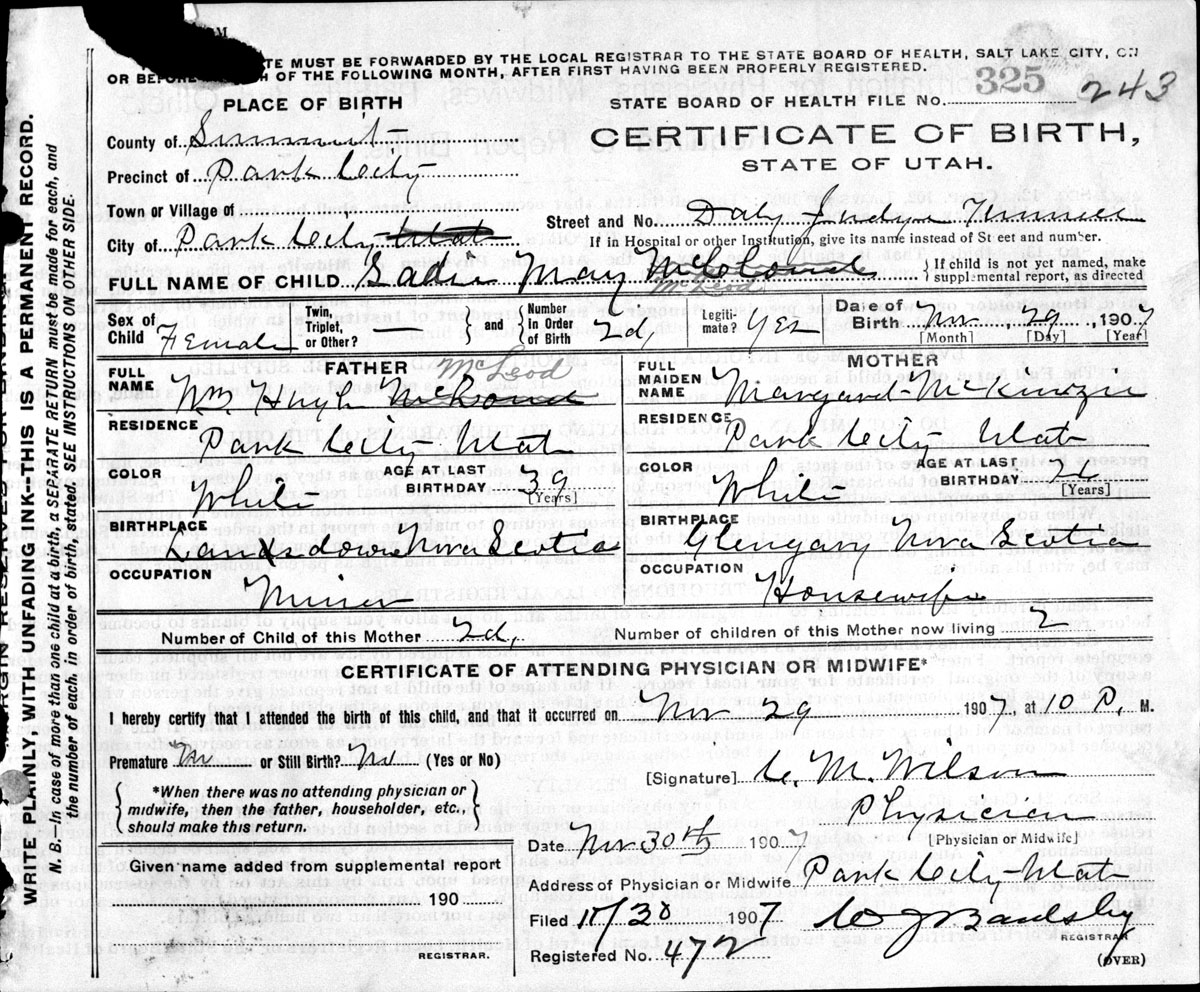 TE MUST BE FORWARDED BY THE LOCAL REGISTRAR TO THE STATE BOARD OF HEALTH, SALT LAKE CITY, ON
OR BEFORE H OF THE FOLLOWING MONTH, AFTER FIRST HAVING BEEN PROPERLY REGISTERED.
325 243
PLACE OF BIRTH
STATE BOARD OF HEALTH FILE No.
County of Summit
CERTIFICATE OF BIRTH,
STATE OF UTAH.
Precinct of Park City
Town or Village of
Street and No. Daly Judge Tunnel
City of Park City Utah
If in Hospital or other Institution, give its name instead of St eet and number.
FULL NAME OF CHILD Sadie May McLeod
{ If child is not yet named, make supplemental report, as directed
Sex of Child Female
Twin, Triplet, or Other? —
} and {
Number in Order of Birth 2d,
Legiti-mate? Yes
Date of Birth Nov 29, 1907
[Month] [Day] [Year]
FATHER
FULL NAME Wm Hugh McLeod
RESIDENCE Park City Utah
COLOR White
AGE AT LAST BIRTHDAY 39
[Years]
BIRTHPLACE Landsdown Nova Scotia
OCCUPATION Miner
MOTHER
FULL MAIDEN NAME Margaret McKinzie
RESIDENCE Park City Utah
COLOR White
AGE AT LAST BIRTHDAY
[Years]
BIRTHPLACE Glengary Nova Scotia
OCCUPATION Housewife
Number of Child of this Mother 2d,
Number of children of this Mother now living 2
CERTIFICATE OF ATTENDING PHYSICIAN OR MIDWIFE*
I hereby certify that I attended the birth of this child, and that it occurred on Nov 29 1907, at 10 P. M.
Premature No or Still Birth? No (Yes or No)
[Signature] C. M. Wilson
{ *When there was no attending physician or midwife, then the father, householder, etc., should make this return. }
Physician
[Physician or Midwife]
Date Nov 30th 1907
Given name added from supplemental report
190
REGISTRAR.
Address of Physician or Midwife Park City Utah
Filed 11/30 1907
REGISTRAR
Registered No. 472
(OVER)
WRITE PLAINLY, WITH UNFADING INK-THIS IS A PERMANENT RECORD.
N. B.—In case of more than one child at a birth, a SEPARATE RETURN must be made for each, and
the number of each, in order of birth, stated. SEE INSTRUCTIONS ON OTHER SIDE.